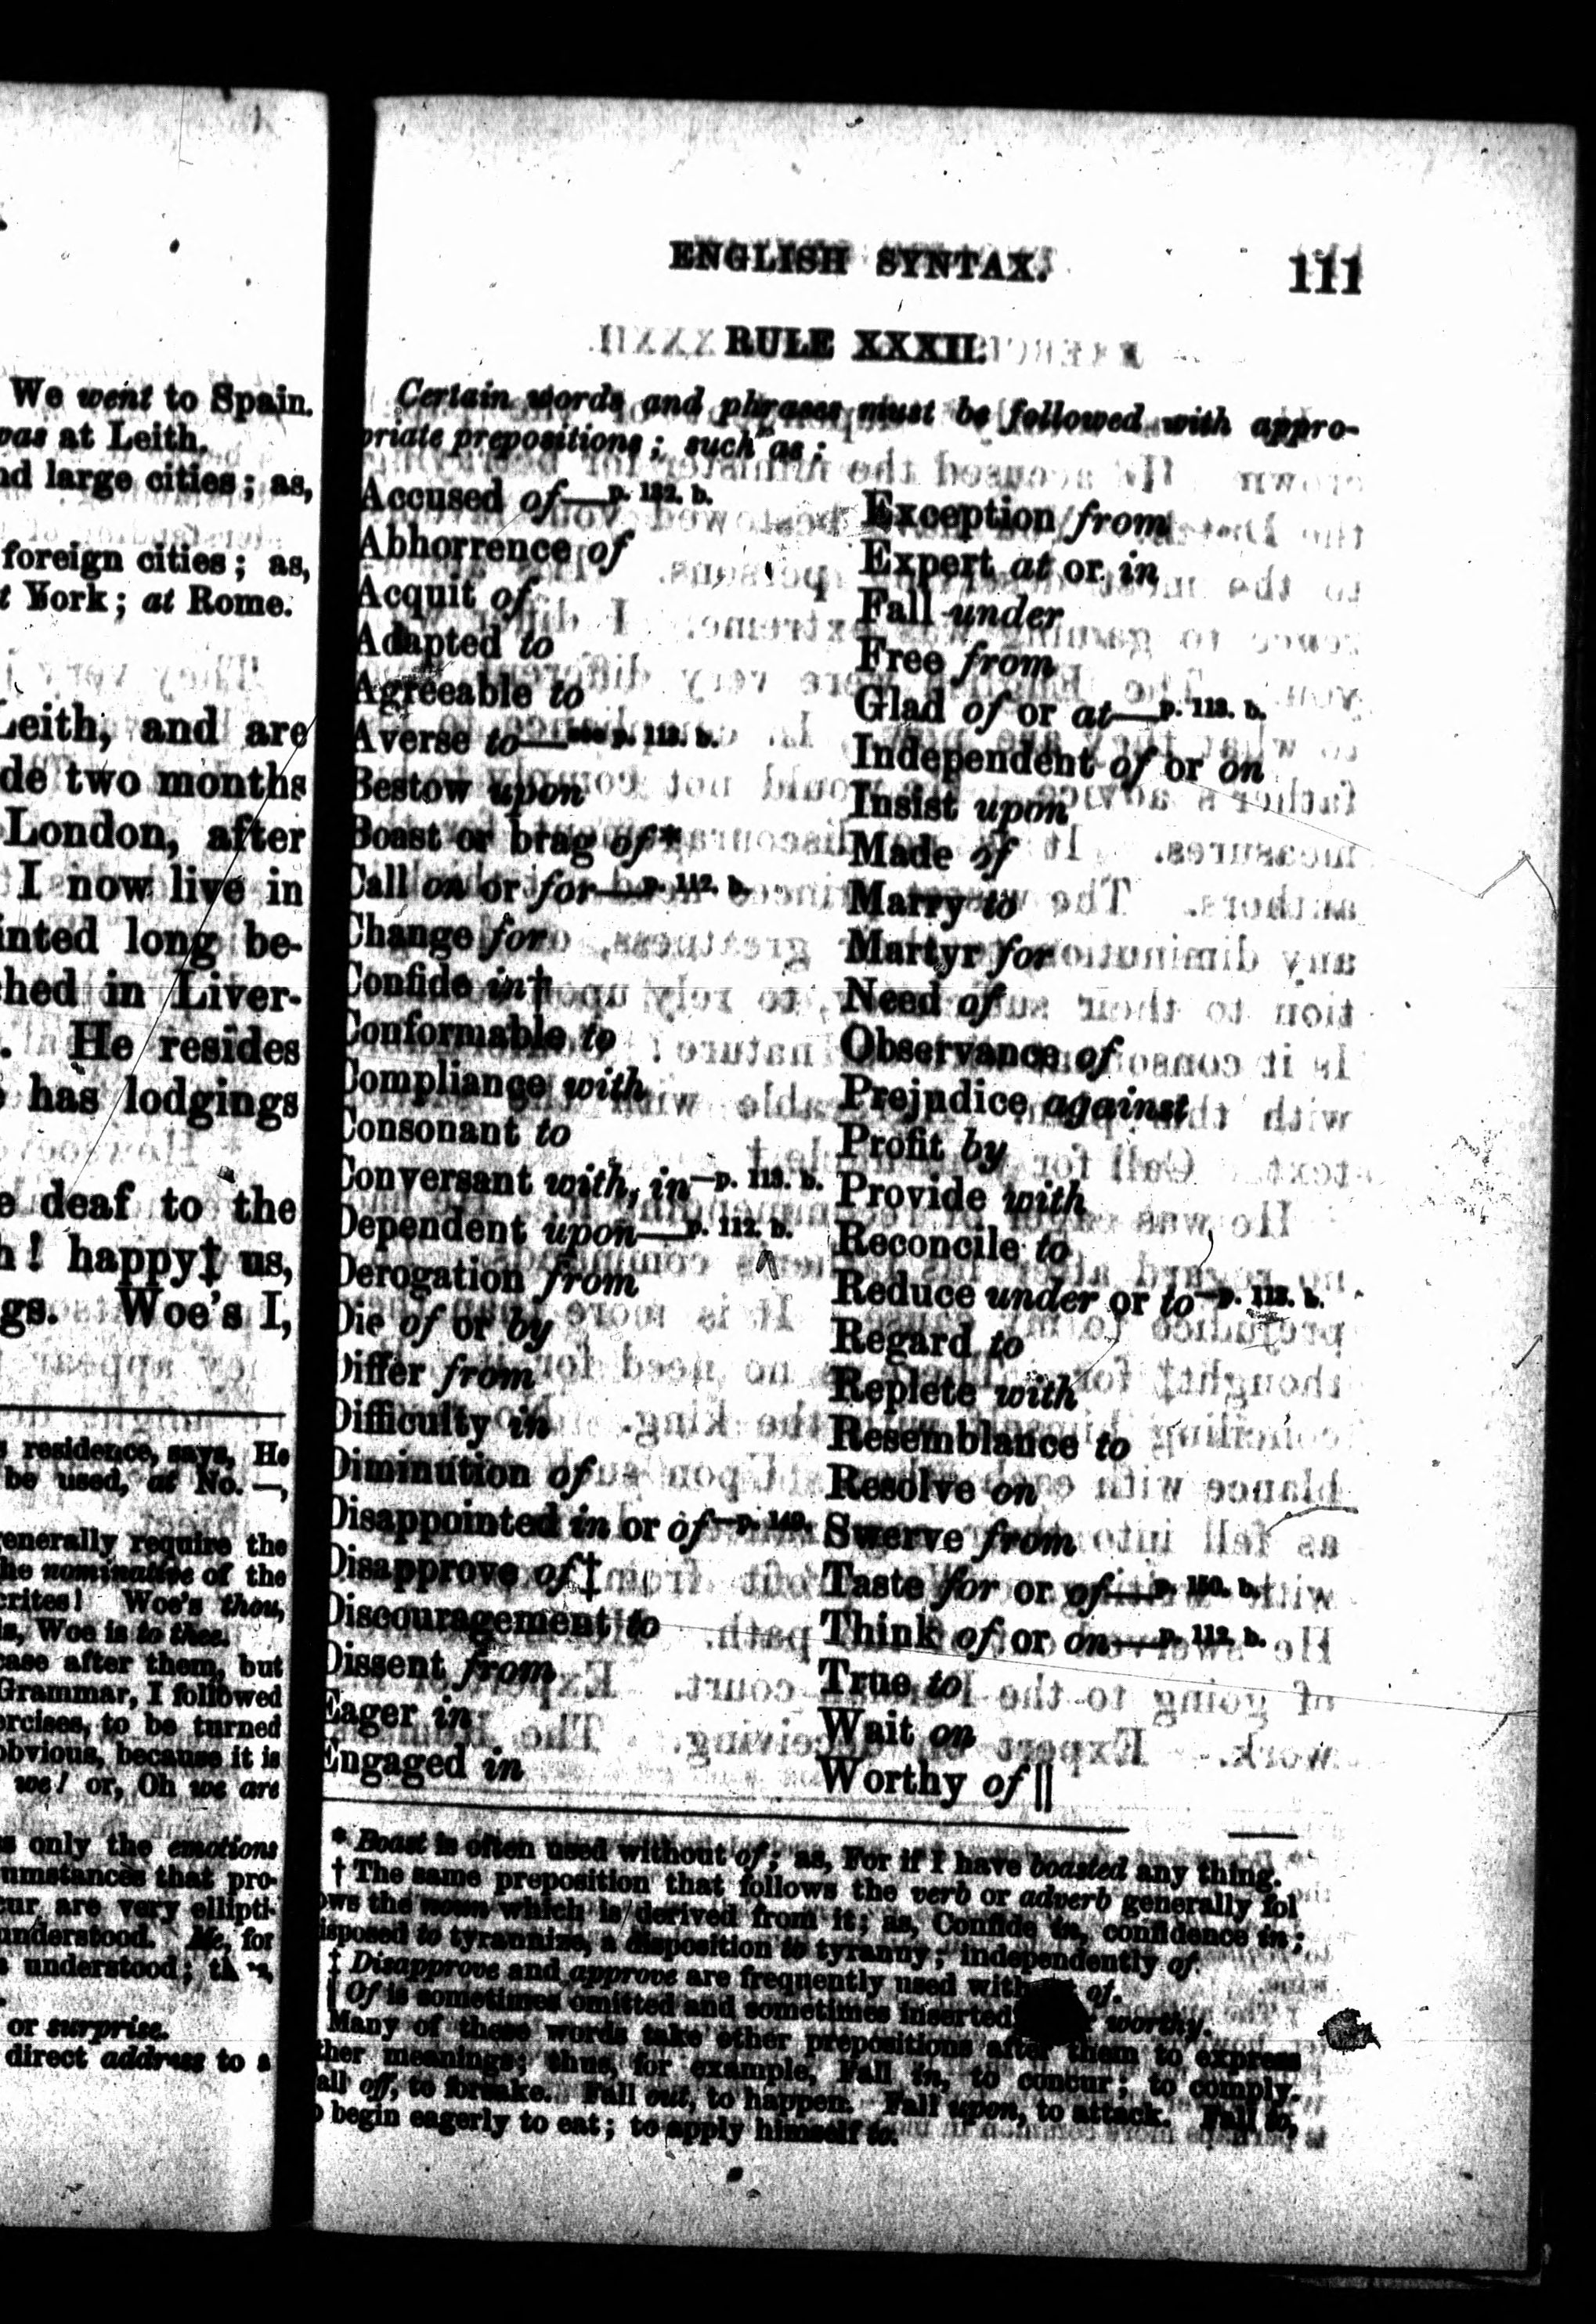 We went to Spain.
at Leith.
large cities; as,
foreign cities; as,
York; at Rome.
Leith, and are
two months
London, after
I now live in
long be-
in Liver-
He resides
has lodgings
deaf to the
! happy‡ us,
Woe's I,
residence, says, He
be used, at No. —,
generally require the
nominative of the
Woe's thou,
Woe is to thee.
case after them, but
Grammar, I followed
to be turned
obvious, because it is
we! or, Oh we are
only the emotions
that pro-
are very ellipti-
understood. Me, for
understood;
or surprise.
direct address to a
ENGLISH SYNTAX. 111
RULE XXXII.
Certain words and phrases must be followed with appro-
priate prepositions; such as:
Accused of—p. 132. b.
Abhorrence of
Acquit of
Adapted to
Agreeable to
Averse to—see p. 113. b.
Bestow upon
Boast or brag of*
Call on or for—p. 112. b.
Change for
Confide in†
Conformable to
Compliance with
Consonant to
Conversant with, in—p. 113. b.
Dependent upon—p. 112. b.
Derogation from
Die of or by
Differ from
Difficulty in
Diminution of
Disappointed in or of—p. 140.
Disapprove of‡
Discouragement to
Dissent from
Eager in
Engaged in
Exception from
Expert at or in
Fall under
Free from
Glad of or at—p. 113. b.
Independent of or on
Insist upon
Made of
Marry to
Martyr for
Need of
Observance of
Prejudice against
Profit by
Provide with
Reconcile to
Reduce under or to—p. 113. b.
Regard to
Replete with
Resemblance to
Resolve on
Swerve from
Taste for or of—p. 150. b.
Think of or on—p. 112. b.
True to
Wait on
Worthy of||
* Boast is often used without of; as, For if I have boasted any thing.
† The same preposition that follows the verb or adverb generally fol
ows the noun which is derived from it; as, Confide in, confidence in;
isposed to tyrannize, a disposition to tyranny; independently of.
‡ Disapprove and approve are frequently used of.
|| Of is sometimes omitted and sometimes inserted worthy.
Many of these words take other prepositions after them to express
ther meanings; thus, for example, Fall in, to concur; to comply.
all off, to forsake. Fall out, to happen. Fall upon, to attack. Fall to,
o begin eagerly to eat; to apply himself to.